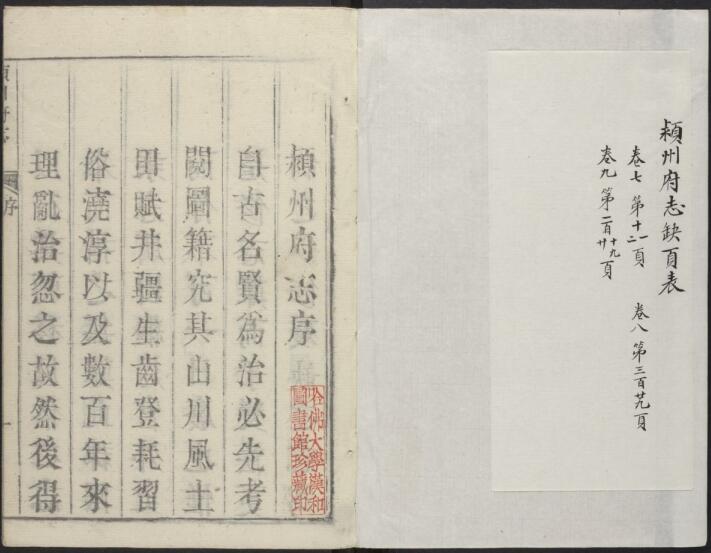 潁州府志缺頁表
卷七 第十一二頁 卷八 第三百廿九頁
卷九 第二百十九廿頁
潁州府志序
自古名賢為治必先考
閱圖籍究其山川風土
田賦井疆生齒登耗習
俗澆淳以及數百年來
理亂治忽之故然後得
哈佛大學漢和
圖書館珍藏印
潁州府志
序
一